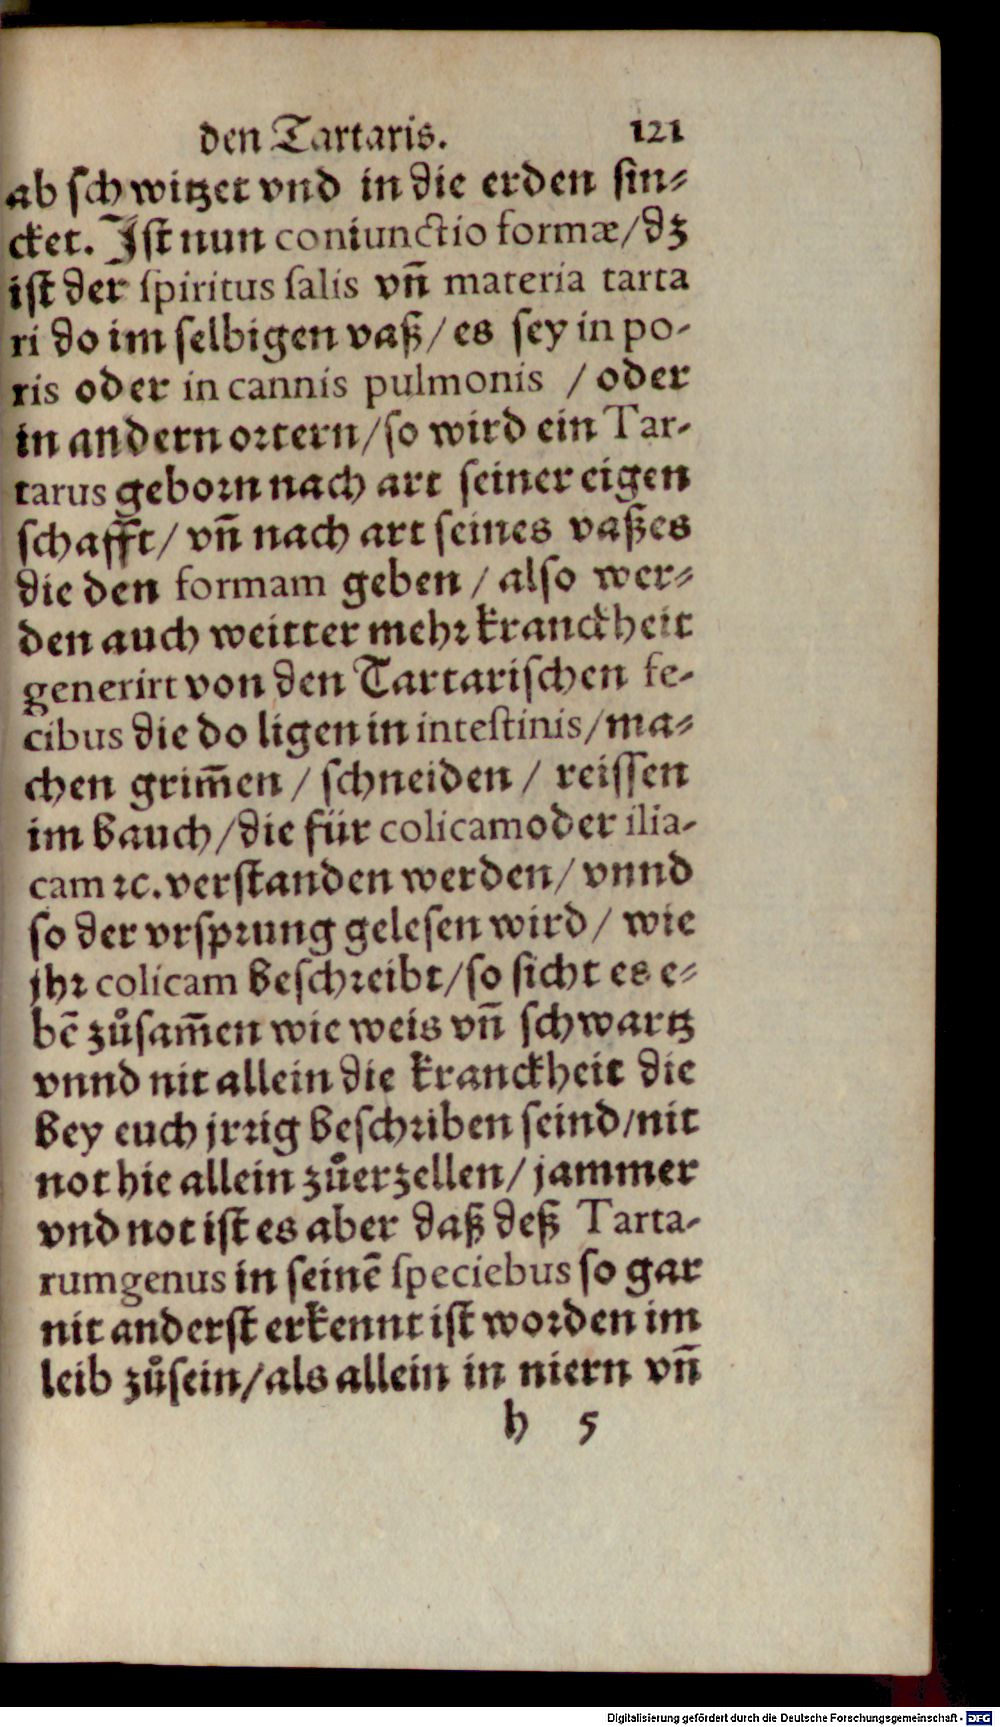 den Tartaris. 121
ab schwitzet vnd in die erden sin⸗
cket. Jst nun coniunctio formæ/dz
ist der spiritus salis vñ materia tarta
ri do im selbigen vaß/es sey in po-
ris oder in cannis pulmonis / oder
in andern ortern/so wird ein Tar-
tarus geborn nach art seiner eigen
schafft/ vñ nach art seines vaßes
die den formam geben / also wer⸗
den auch weitter mehr kranckheit
generirt von den Tartarischen fe-
cibus die do ligen in intestinis/ma⸗
chen grim̃en / schneiden / reissen
im bauch/die für colicam oder ilia-
cam ꝛc. verstanden werden/ vnnd
so der vrsprung gelesen wird/ wie
jhr colicam beschreibt/so sicht es e⸗
bẽ zůsam̃en wie weis vñ schwartz
vnnd nit allein die kranckheit die
bey euch jrrig beschriben seind/nit
not hie allein zůerzellen/ jammer
vnd not ist es aber daß deß Tarta-
rum genus in seinẽ speciebus so gar
nit anderst erkennt ist worden im
leib zůsein/als allein in niern vñ
h 5
Digitalisierung gefördert durch die Deutsche Forschungsgemeinschaft - DFG